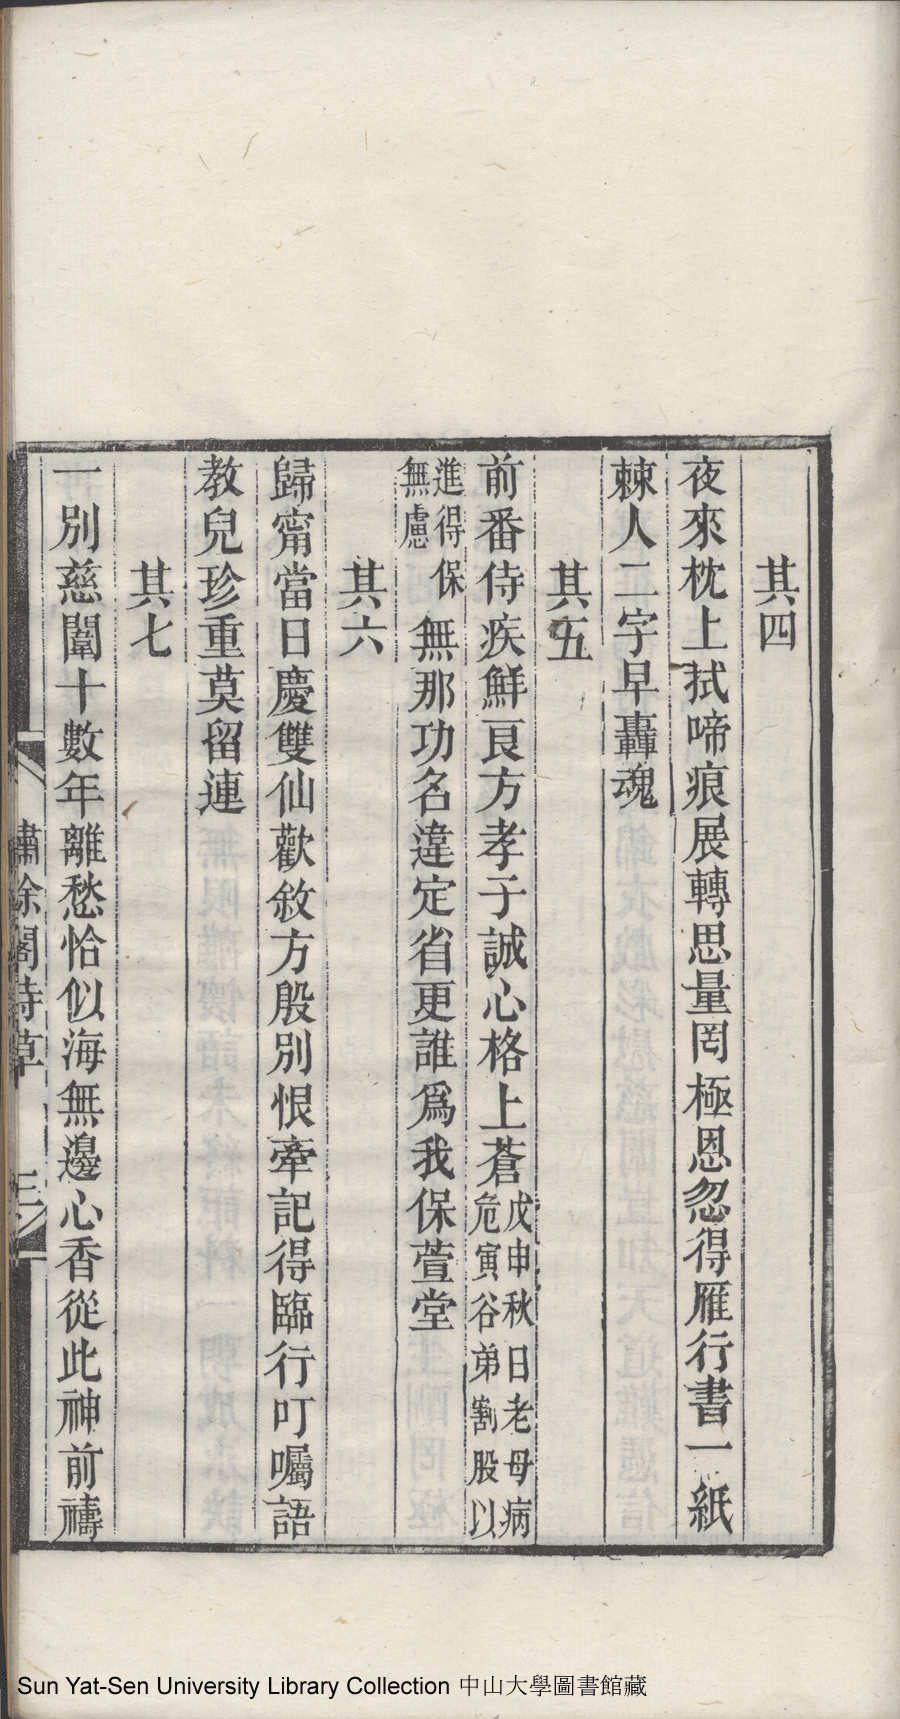 其四
夜來枕上拭啼痕展轉思量罔極恩忽得雁行書一紙
棘人二字早轟魂
其五
前番侍疾鮮良方孝子誠心格上蒼戊申秋日老母病危寅谷弟割股以
進得保無慮無那功名違定省更誰爲我保萱堂
其六
歸甯當日慶雙仙歡敘方殷別恨牽記得臨行叮囑語
教兒珍重莫留連
其七
一別慈闈十數年離愁恰似海無邊心香從此神前禱
繡餘閣詩草
三
Sun Yat-Sen University Library Collection 中山大學圖書館藏